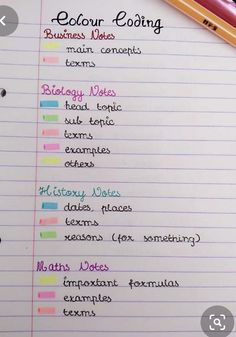 Colour Coding
Business Notes
main concepts
terms
Biology Notes
head topic
sub topic
terms
examples
others
History Notes
dates, places
terms
reasons (for something)
Maths Notes
important formulas
examples
terms